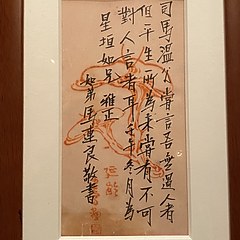 司馬溫公嘗言吾無過人者
但平生所為未嘗有不可
對人言者耳壬午冬月為
星垣如兄雅正
如弟馬連良敬書